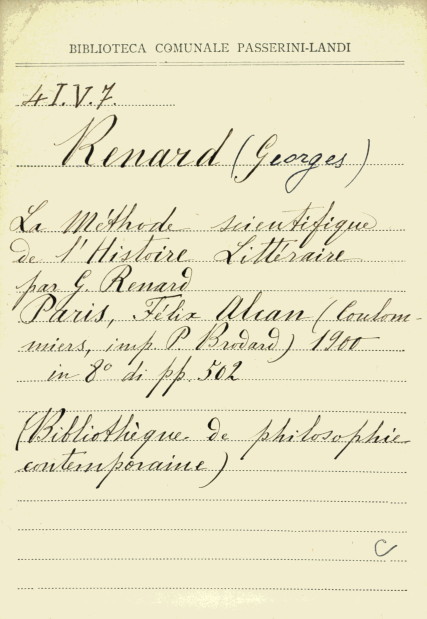 BIBLIOTECA COMUNALE PASSERINI-LANDI
4 I.V.7.
Renard (Georges)
La Méthode scientifique
de l'Histoire Littéraire
par G. Renard
Paris, Félix Alcan (Coulom-
miers, imp. P Brodard) 1900
in 8° di pp. 502
(Bibliothèque de philosophie
contemporaine)
C